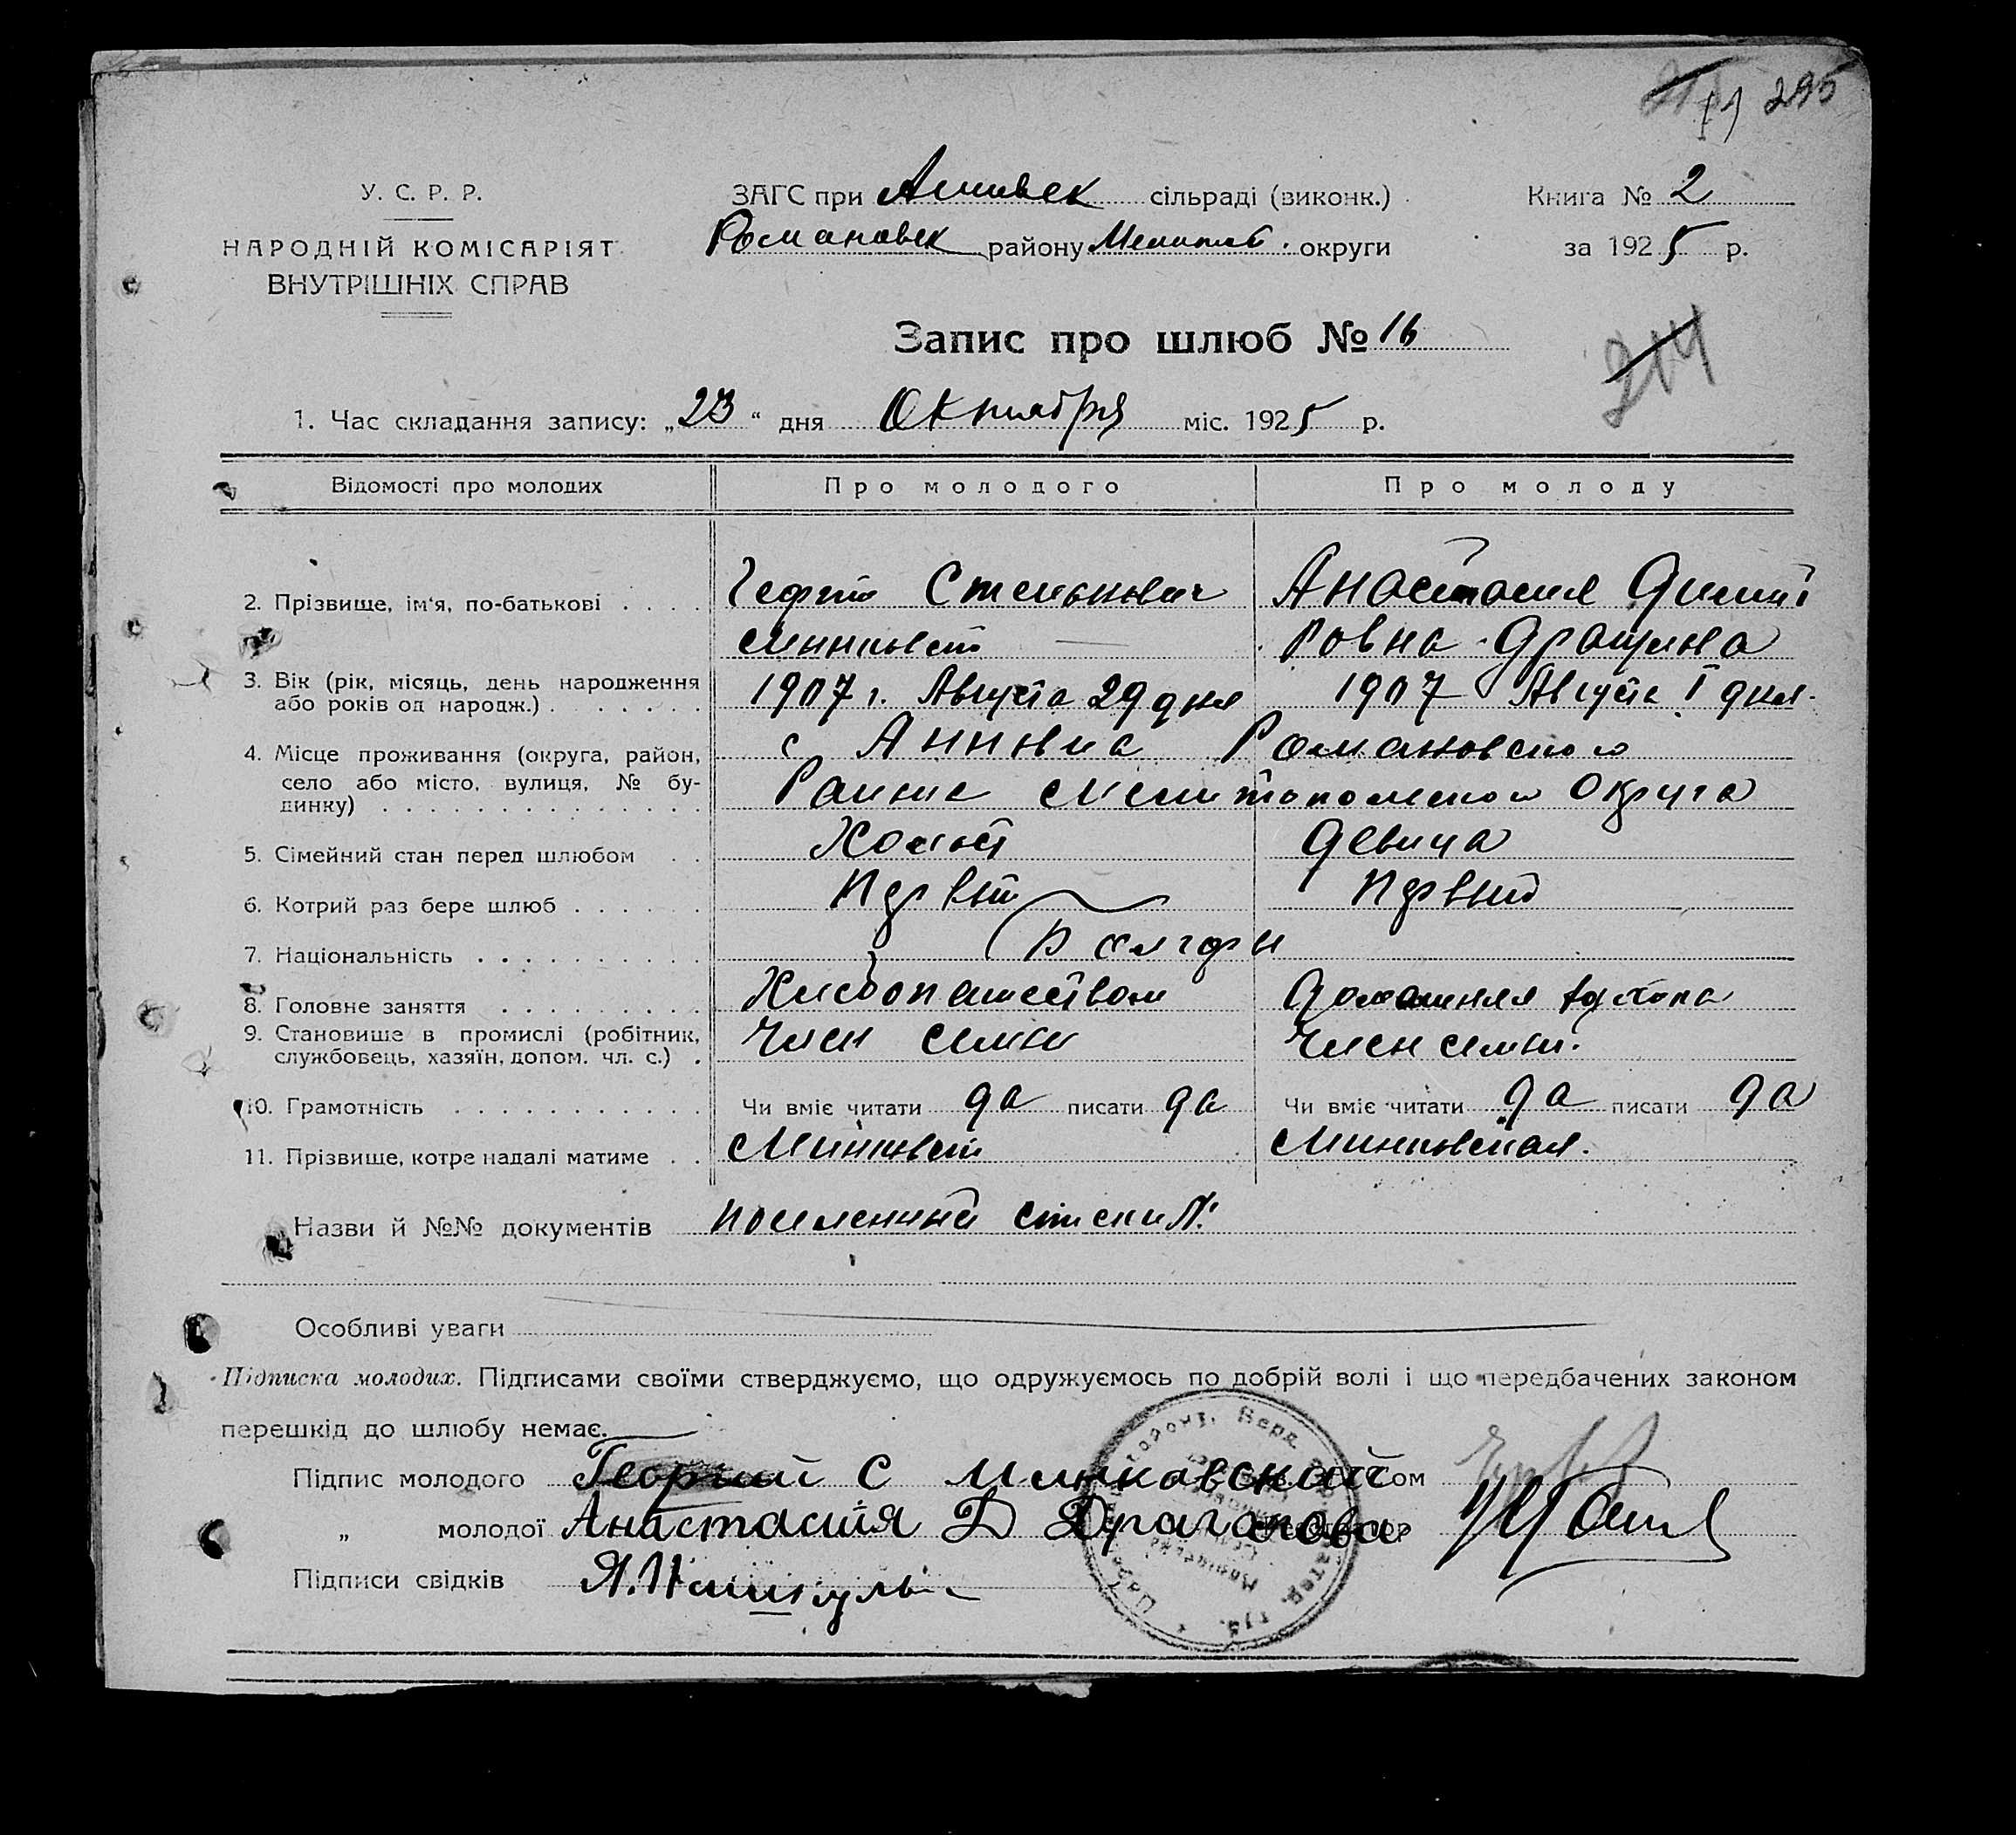 295
У. С. Р. Р.
НАРОДНІЙ КОМІСАРІЯТ
ВНУТРІШНІХ СПРАВ
ЗАГС при сільраді (виконк.)
Романовск району Мелитоп. округи
Книга № 2
за 1925 р.
Запис про шлюб № 16
214
1. Час складання запису: „23“ дня Октября міс. 1925 р.
Відомості про молодих Про молодого Про молоду
2. Прізвище, ім'я, по-батькові . . . . Георгій Анастасия Димит
Минковский ровна Драганова
3. Вік (рік, місяць, день народження або років од народж.) . . . . . . . 1907 г. Августа 29 дня 1907 Августа 1 дня.
4. Місце проживання (округа, район, село або місто, вулиця, № будинку) . . . . . . . . . . . . . . с Анновка Романовского
Района Мелитопольского Округа
5. Сімейний стан перед шлюбом . . Холост Девица
6. Котрий раз бере шлюб . . . . . . Первый Первый
7. Національність . . . . . . . . . . Болгары
8. Головне заняття . . . . . . . . . Хлебопашеством Домашняя работа
9. Становище в промислі (робітник, службовець, хазяїн, допом. чл. с.) . Член семьи Член семьи.
10. Грамотність . . . . . . . . . . . Чи вміє читати да писати да Чи вміє читати да писати да
11. Прізвище, котре надалі матиме . . Минковский Минковская.
Назви й №№ документів Посемейный список
Особливі уваги
Підписка молодих. Підписами своїми стверджуємо, що одружуємось по добрій волі і що передбачених законом
перешкід до шлюбу немає.
Підпис молодого Георгий С Минковский
„ молодої Анастасия Д Драганова
Підписи свідків